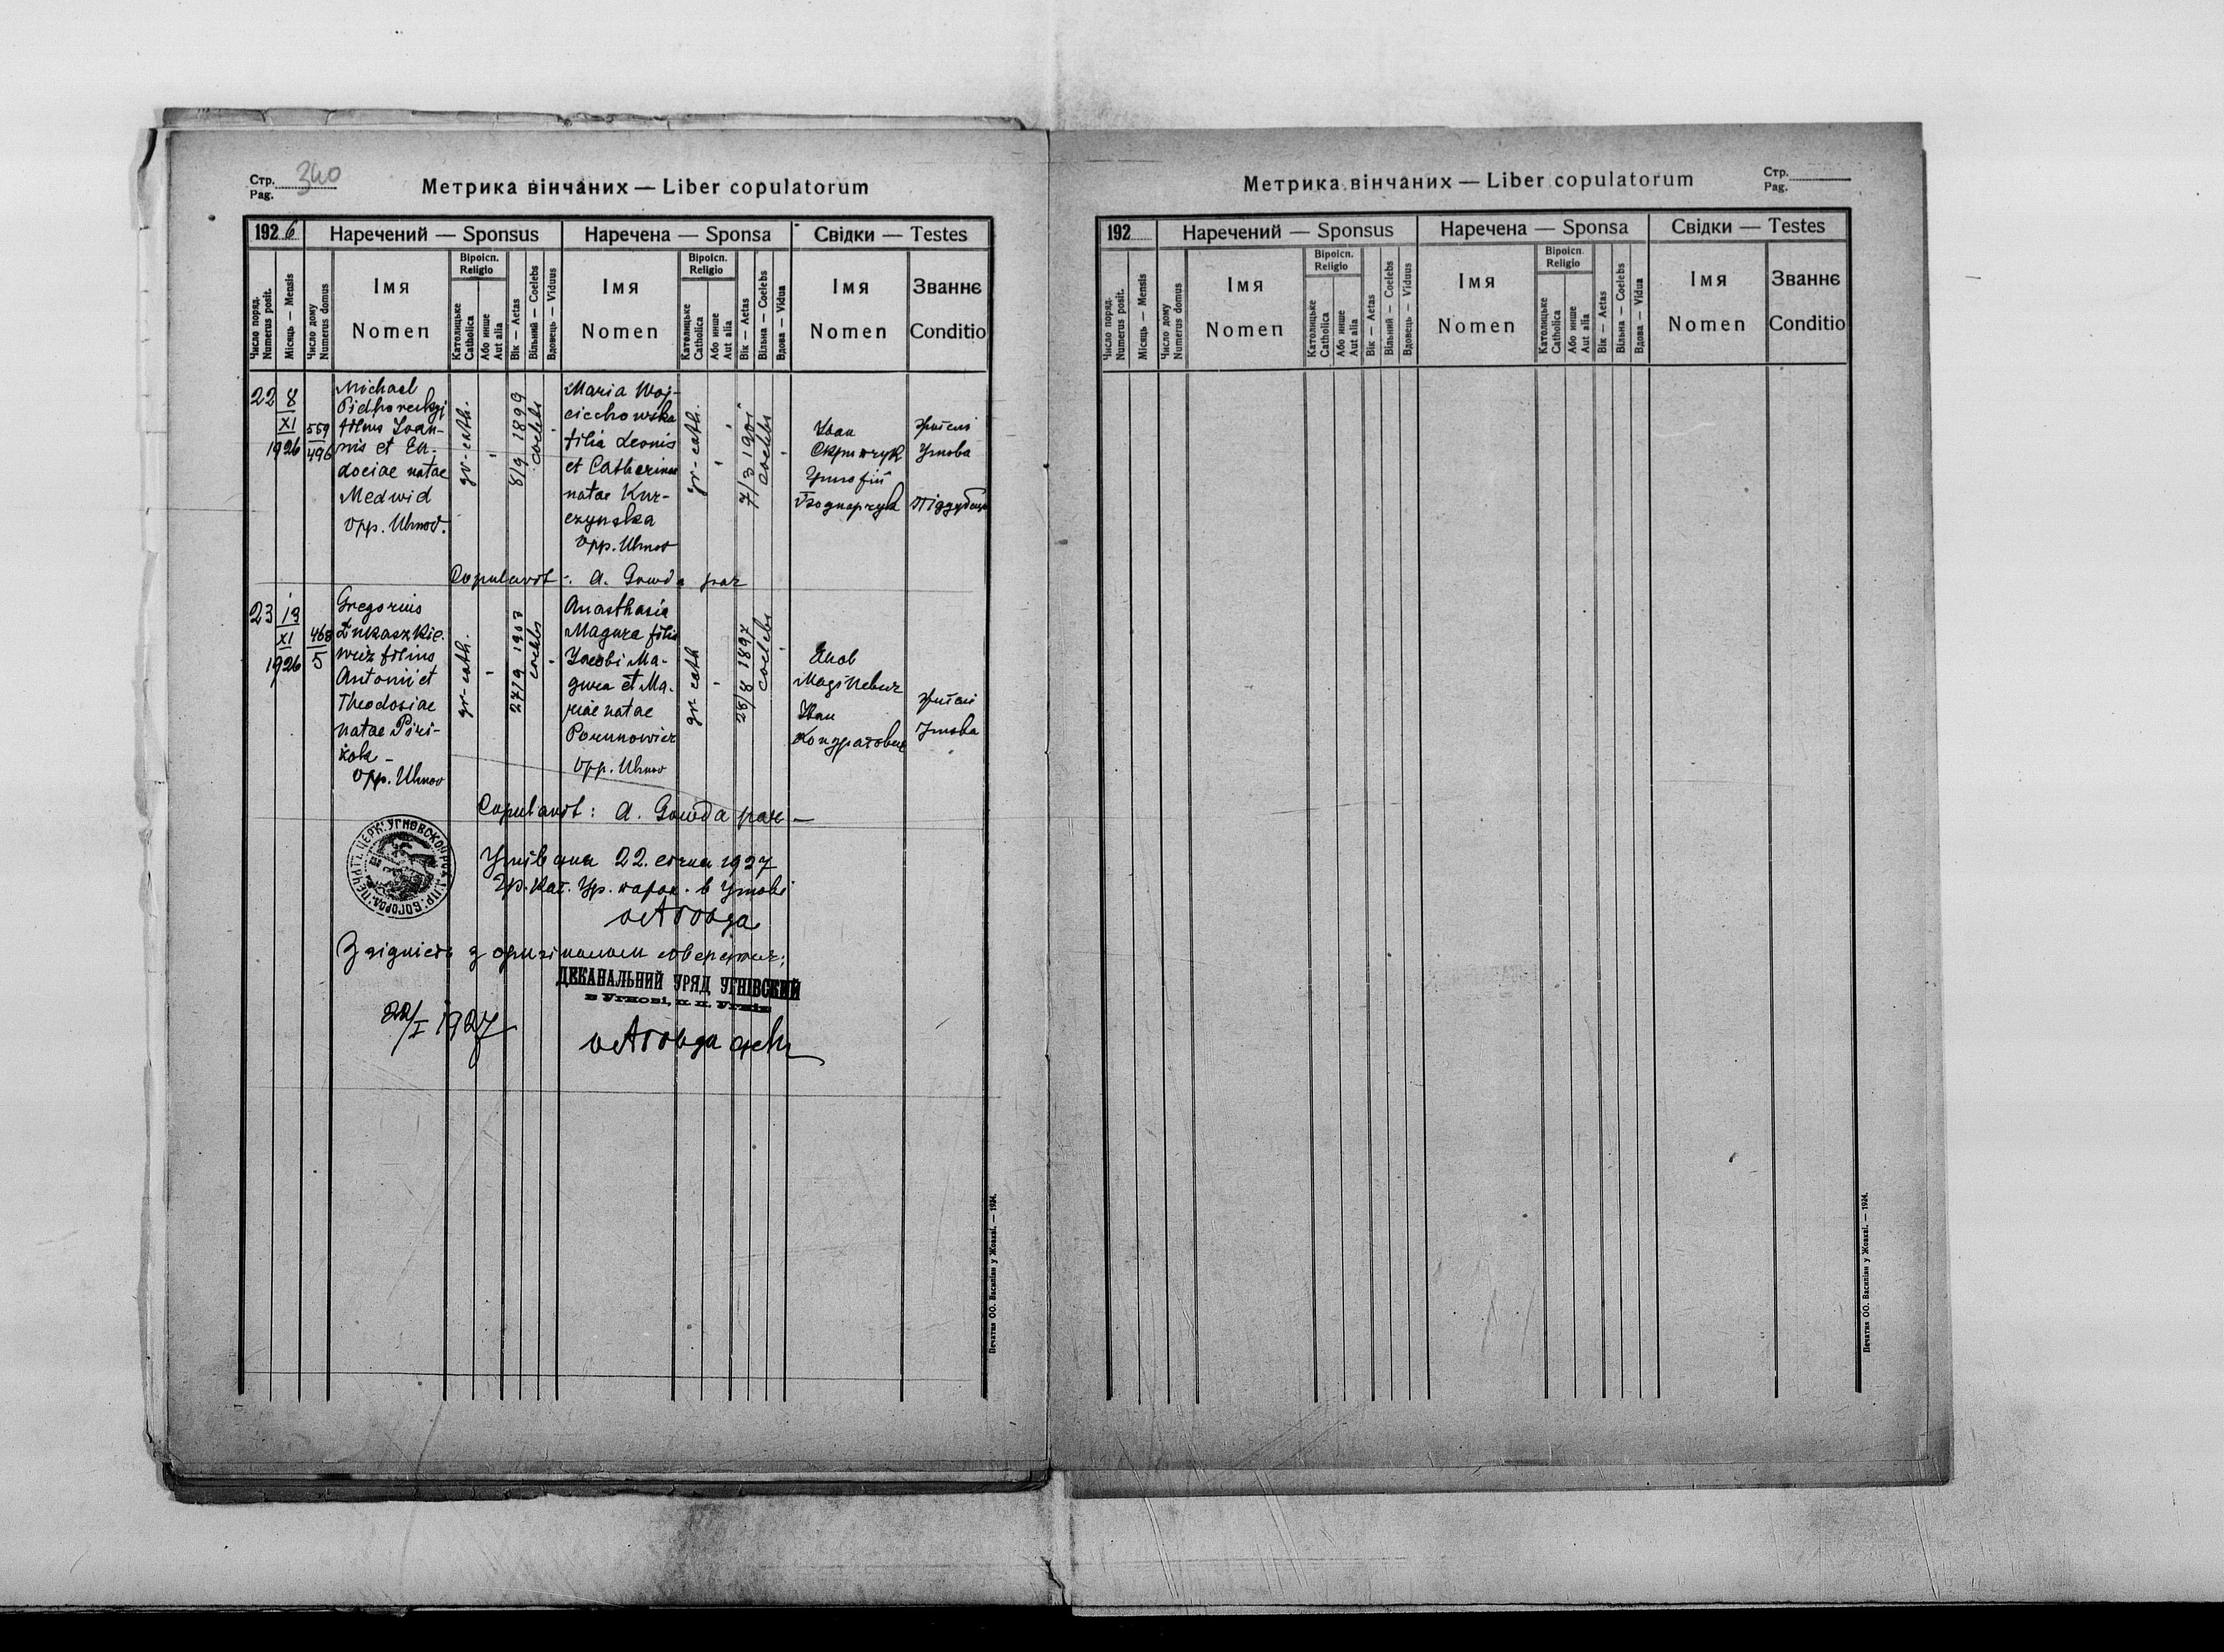 Стр. 340
Pag.
Метрика вінчаних — Liber copulatorum
192 6
Наречений — Sponsus
Наречена — Sponsa
Свідки — Testes
Число поряд.
Numerus posit.
Місяць — Mensis
Число дому
Numerus domus
Імя
Nomen
Віроісп.
Religio
Католицьке
Catholica
Або инше
Aut alia
Вік — Aetas
Вільний — Coelebs
Вдовець — Viduus
Імя
Nomen
Віроісп.
Religio
Католицьке
Catholica
Або инше
Aut alia
Вік — Aetas
Вільна — Coelebs
Вдова — Vidua
Імя
Nomen
Званнє
Conditio
22
8
XI
1926
559
496
Michael
Pidhoreckyj
filius Joan-
nis et Eu-
dociae natae
Medwid
opp. Uhnov.
gr-cath.
8/9 1899
coelebs
Maria Woj-
ciechowska
filia Leonis
et Catharinae
natae Kur-
czynska
opp. Uhnov
gr-cath.
7/3 1901
coelebs
Іван
Угнова
Copulavit: A. Gowda par
23
13
XI
1926
468
5
Gregorius
Łukaszkie-
wicz filius
Antonii et
Theodosiae
natae Piri-
żok -
opp. Uhnov
gr-cath.
27/9 1903
coelebs
Anasthasia
Magura filia
Jacobi Ma-
gura et Ma-
riae natae
Porunowicz
opp. Uhnov
gr-cath
28/8 1897
coelebs
Яков
Іван
Кондратович
Угнова
Copulavit: A. Gowda par —
Угнів дня 22. січня 1927
Гр. кат. Ур. парох. в Угнові
А Говда
З згідність з оригіналом
ДЕКАНАЛЬНИЙ УРЯД УГНІВСКИЙ
в Угнові, п. п. Угнів
22/I 1927
А Говда
Печатня ОО. Василіян у Жовкві. — 1924.
Метрика вінчаних — Liber copulatorum
Стр.
Pag.
192
Наречений — Sponsus
Наречена — Sponsa
Свідки — Testes
Число поряд.
Numerus posit.
Місяць — Mensis
Число дому
Numerus domus
Імя
Nomen
Віроісп.
Religio
Католицьке
Catholica
Або инше
Aut alia
Вік — Aetas
Вільний — Coelebs
Вдовець — Viduus
Імя
Nomen
Віроісп.
Religio
Католицьке
Catholica
Або инше
Aut alia
Вік — Aetas
Вільна — Coelebs
Вдова — Vidua
Імя
Nomen
Званнє
Conditio
Печатня ОО. Василіян у Жовкві. — 1924.